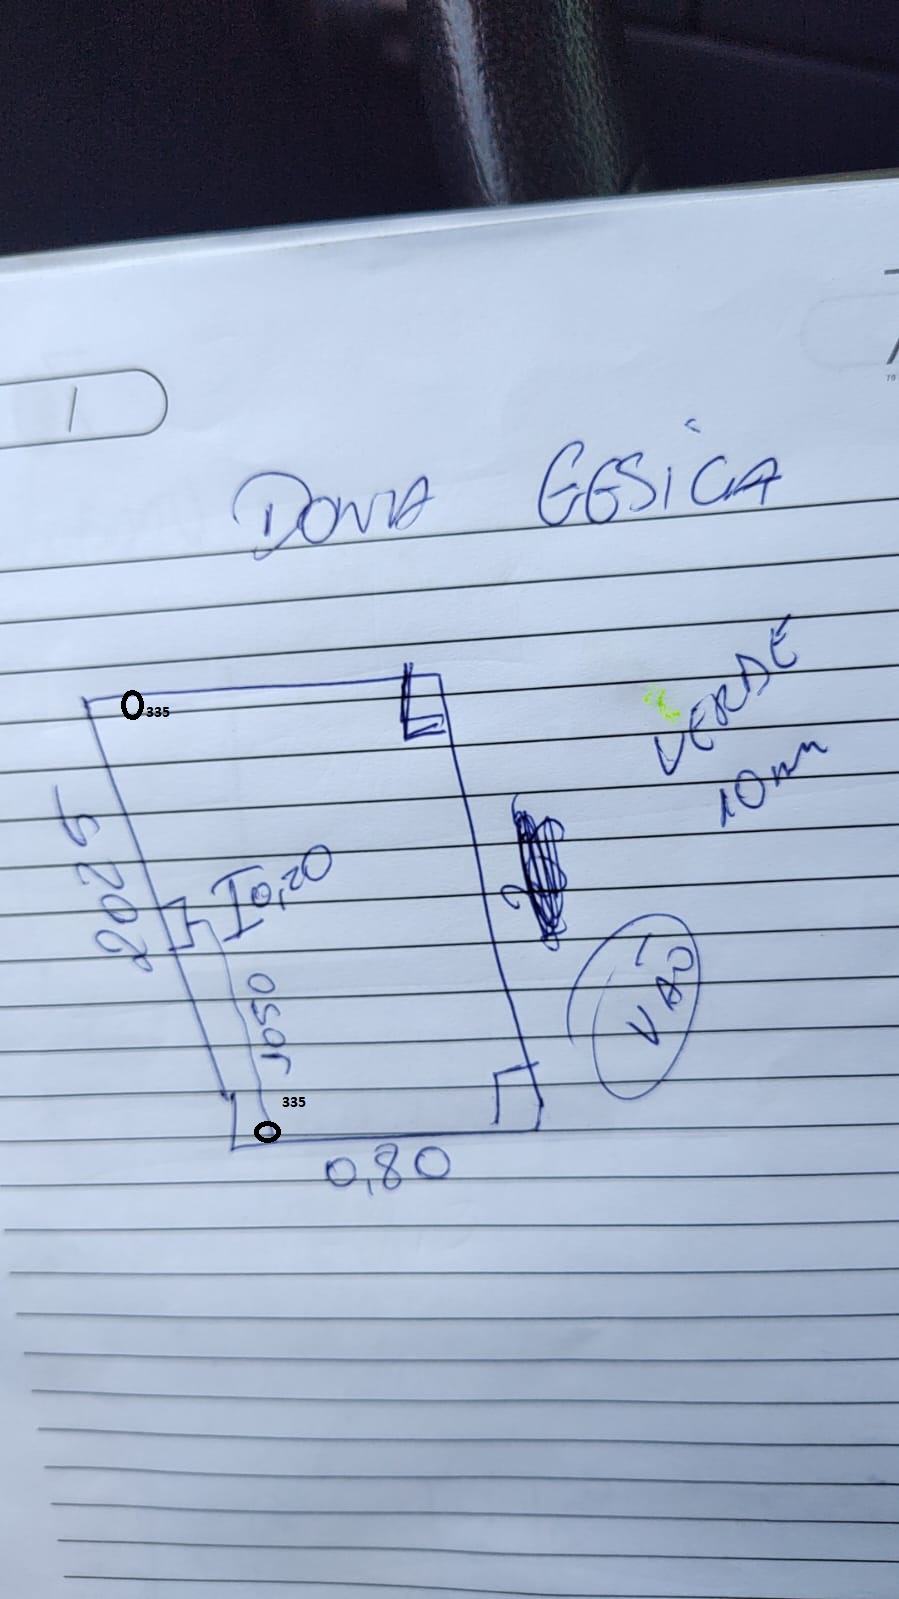 DONA GESICA
335
VERDE
10mm
2025
I0,20
VÃO
1050
335
0,80